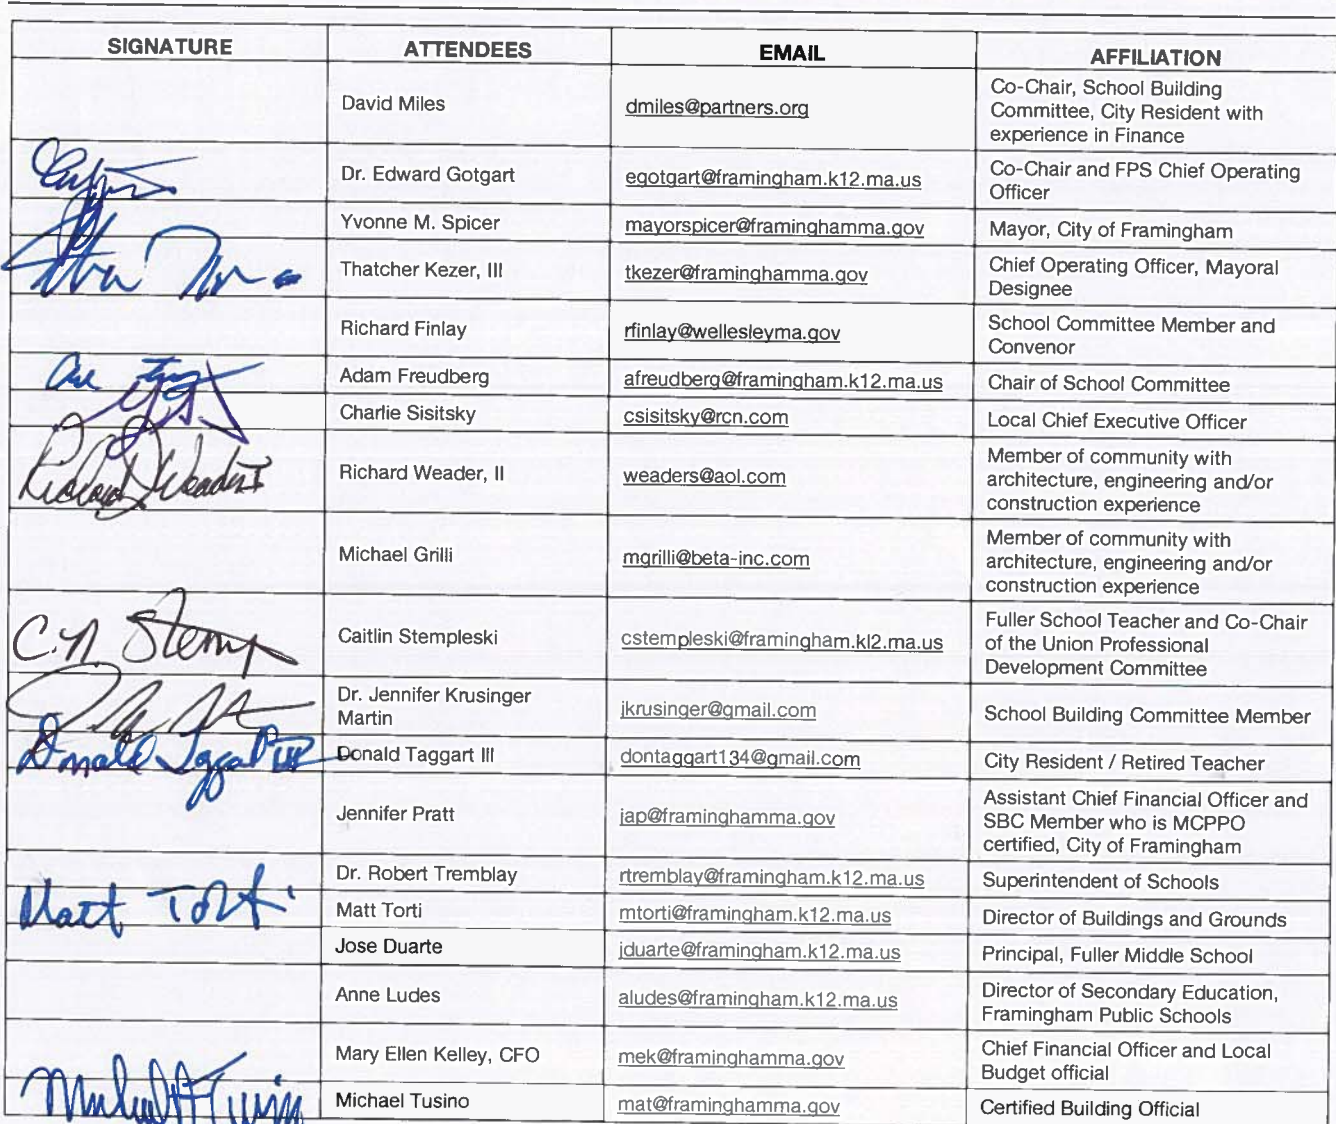 SIGNATURE ATTENDEES EMAIL AFFILIATION
David Miles dmiles@partners.org Co-Chair, School Building
Committee, City Resident with
experience in Finance
Dr. Edward Gotgart egotgart@framingham.k12.ma.us Co-Chair and FPS Chief Operating
Officer
Yvonne M. Spicer mayorspicer@framinghamma.gov Mayor, City of Framingham
Thatcher Kezer, III tkezer@framinghamma.gov Chief Operating Officer, Mayoral
Designee
Richard Finlay rfinlay@wellesleyma.gov School Committee Member and
Convenor
Adam Freudberg afreudberg@framingham.k12.ma.us Chair of School Committee
Charlie Sisitsky csisitsky@rcn.com Local Chief Executive Officer
Richard Weader II Richard Weader, II weaders@aol.com Member of community with
architecture, engineering and/or
construction experience
Michael Grilli mgrilli@beta-inc.com Member of community with
architecture, engineering and/or
construction experience
C.N. Stemp Caitlin Stempleski cstempleski@framingham.kl2.ma.us Fuller School Teacher and Co-Chair
of the Union Professional
Development Committee
Dr. Jennifer Krusinger
Martin jkrusinger@gmail.com School Building Committee Member
Donald Taggart III Donald Taggart III dontaggart134@gmail.com City Resident / Retired Teacher
Jennifer Pratt jap@framinghamma.gov Assistant Chief Financial Officer and
SBC Member who is MCPPO
certified, City of Framingham
Dr. Robert Tremblay rtremblay@framingham.k12.ma.us Superintendent of Schools
Matt Torti Matt Torti mtorti@framingham.k12.ma.us Director of Buildings and Grounds
Jose Duarte jduarte@framingham.k12.ma.us Principal, Fuller Middle School
Anne Ludes aludes@framingham.k12.ma.us Director of Secondary Education,
Framingham Public Schools
Mary Ellen Kelley, CFO mek@framinghamma.gov Chief Financial Officer and Local
Budget official
Michael Tusino mat@framinghamma.gov Certified Building Official